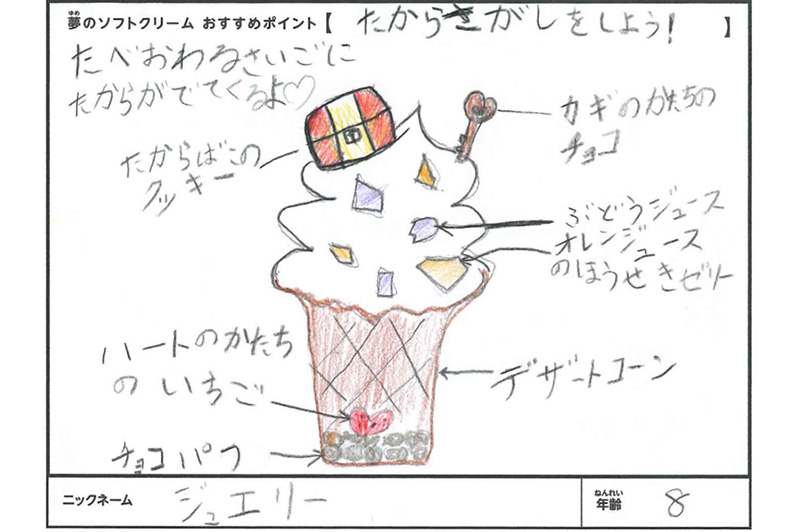 夢のソフトクリーム おすすめポイント【 たからさがしをしよう! 】
ゆめ
たべおわるさいごに
たからがでてくるよ♡
カギのかたちの
チョコ
たからばこの
クッキー
ぶどうジュース
オレンジュース
のほうせきゼリー
ハートのかたち
のいちご
デザートコーン
チョコパフ
ニックネーム ジュエリー
ねんれい
年齢 8